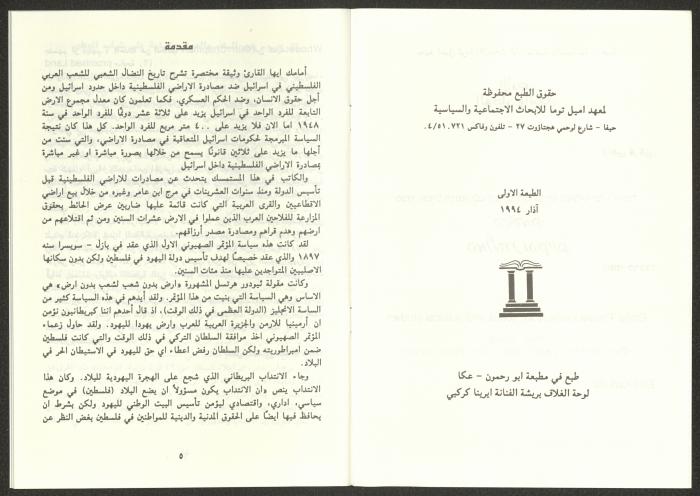 حقوق الطبع محفوظة
لمعهد اميل توما للابحاث الاجتماعية والسياسية
حيفا - شارع لوحمي هجتاؤوت ٢٧ - تلفون وفاكس ٥١٠٧٢١/٠٤
الطبعة الاولى
آذار ١٩٩٤
طبع في مطبعة ابو رحمون - عكا
لوحة الغلاف بريشة الفنانة ايرينا كركبي
مقدمة
أمامك ايها القارئ وثيقة مختصرة تشرح تاريخ النضال الشعبي للشعب العربي
الفلسطيني في اسرائيل ضد مصادرة الاراضي الفلسطينية داخل حدود اسرائيل ومن
أجل حقوق الانسان، وضد الحكم العسكري. فكما تعلمون كان معدل مجموع الارض
التابعة للفرد الواحد في اسرائيل يزيد على ثلاثة عشر دونمًا للفرد الواحد في سنة
١٩٤٨ اما الان فلا يزيد على ٤٠٠ متر مربع للفرد الواحد. كل هذا كان نتيجة
السياسة المبرمجة لحكومات اسرائيل المتعاقبة في مصادرة الاراضي، والتي سنت من
أجلها ما يزيد على ثلاثين قانونًا يسمح من خلالها بصورة مباشرة او غير مباشرة
بمصادرة الاراضي الفلسطينية داخل اسرائيل
والكاتب في هذا المستمسك يتحدث عن مصادرات للاراضي الفلسطينية قبل
تأسيس الدولة ومنذ سنوات العشرينات في مرج ابن عامر وغيره من خلال بيع اراضي
الاقطاعيين والقرى العربية التي كانت قائمة عليها ضاربين عرض الحائط بحقوق
المزارعة للفلاحين العرب الذين عملوا في الارض عشرات السنين ومن ثم اقتلاعهم من
ارضهم وهدم قراهم ومصادرة مصدر أرزاقهم.
لقد كانت هذه سياسة المؤتمر الصهيوني الاول الذي عقد في بازل - سويسرا سنه
١٨٩٧ والذي عقد خصيصًا لهدف تأسيس دولة اليهود في فلسطين ولكن بدون سكانها
الاصليين المتواجدين عليها منذ مئات السنين.
وكانت مقولة ثيودور هرتسل المشهورة «ارض بدون شعب لشعب بدون ارض» هي
الاساس وهي السياسة التي بنيت من هذا المؤتمر. ولقد أيدهم في هذه السياسة كثير من
الساسة الانجليز (الدولة العظمى في ذلك الوقت)، اذ قال أحدهم اننا كبريطانيون نؤمن
ان أرمينيا للارمن والجزيرة العربية للعرب وارض يهودا لليهود. وقد حاول زعماء
المؤتمر الصهيوني اخذ موافقة السلطان التركي في ذلك الوقت والتي كانت فلسطين
ضمن امبراطوريته ولكن السلطان رفض اعطاء اي حق لليهود في الاستيطان الحر في
البلاد.
وجاء الانتداب البريطاني الذي شجع على الهجرة اليهودية للبلاد. وكان هذا
الانتداب ينص «ان الانتداب يكون مسؤولاً ان يضع البلاد (فلسطين) في موضع
سياسي، اداري، واقتصادي ليؤمن تأسيس البيت الوطني لليهود ولكن بشرط ان
يحافظ فيها أيضًا على الحقوق المدنية والدينية للمواطنين في فلسطين بغض النظر عن
٥